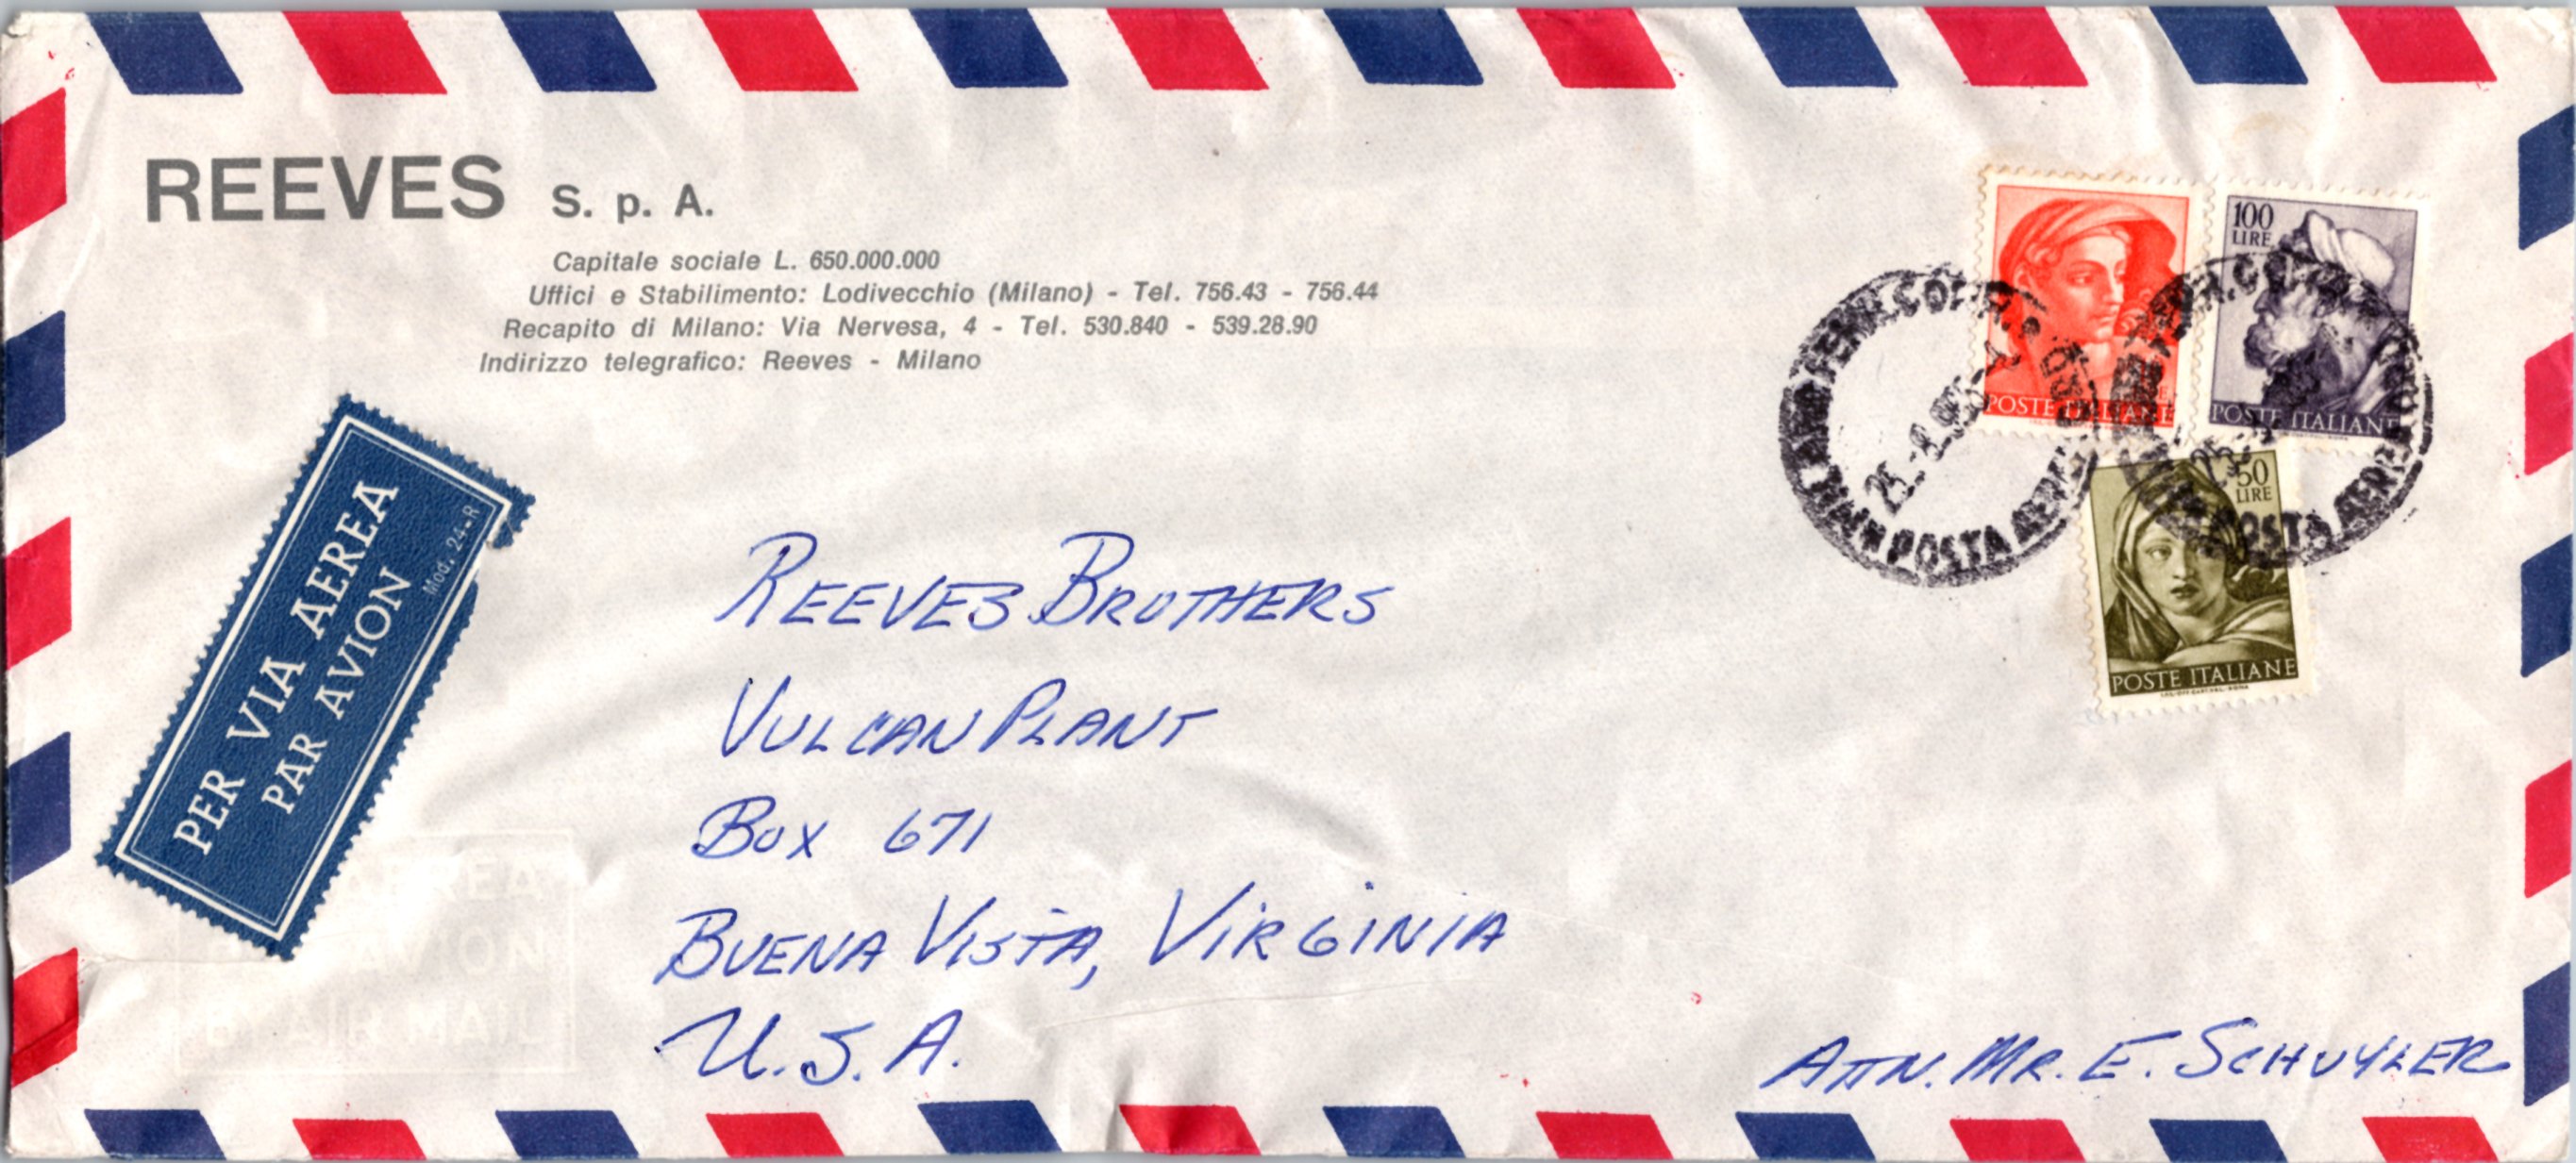 REEVES S. p. A.
Capitale sociale L. 650.000.000
Uffici e Stabilimento: Lodivecchio (Milano) - Tel. 756.43 - 756.44
Recapito di Milano: Via Nervesa, 4 - Tel. 530.840 - 539.28.90
Indirizzo telegrafico: Reeves - Milano
100
LIRE
POSTE ITALIANE
POSTE ITALIANE
POSTA AEREA
50
LIRE
POSTA AEREA
POSTE ITALIANE
PER VIA AEREA
PAR AVION
Mod. 24-R
REEVES BROTHERS
VULCAN PLANT
BOX 671
BUENA VISTA, VIRGINIA
U.S.A.
ATTN. MR. E. SCHUYLER
AEREA
AVION
AIR MAIL